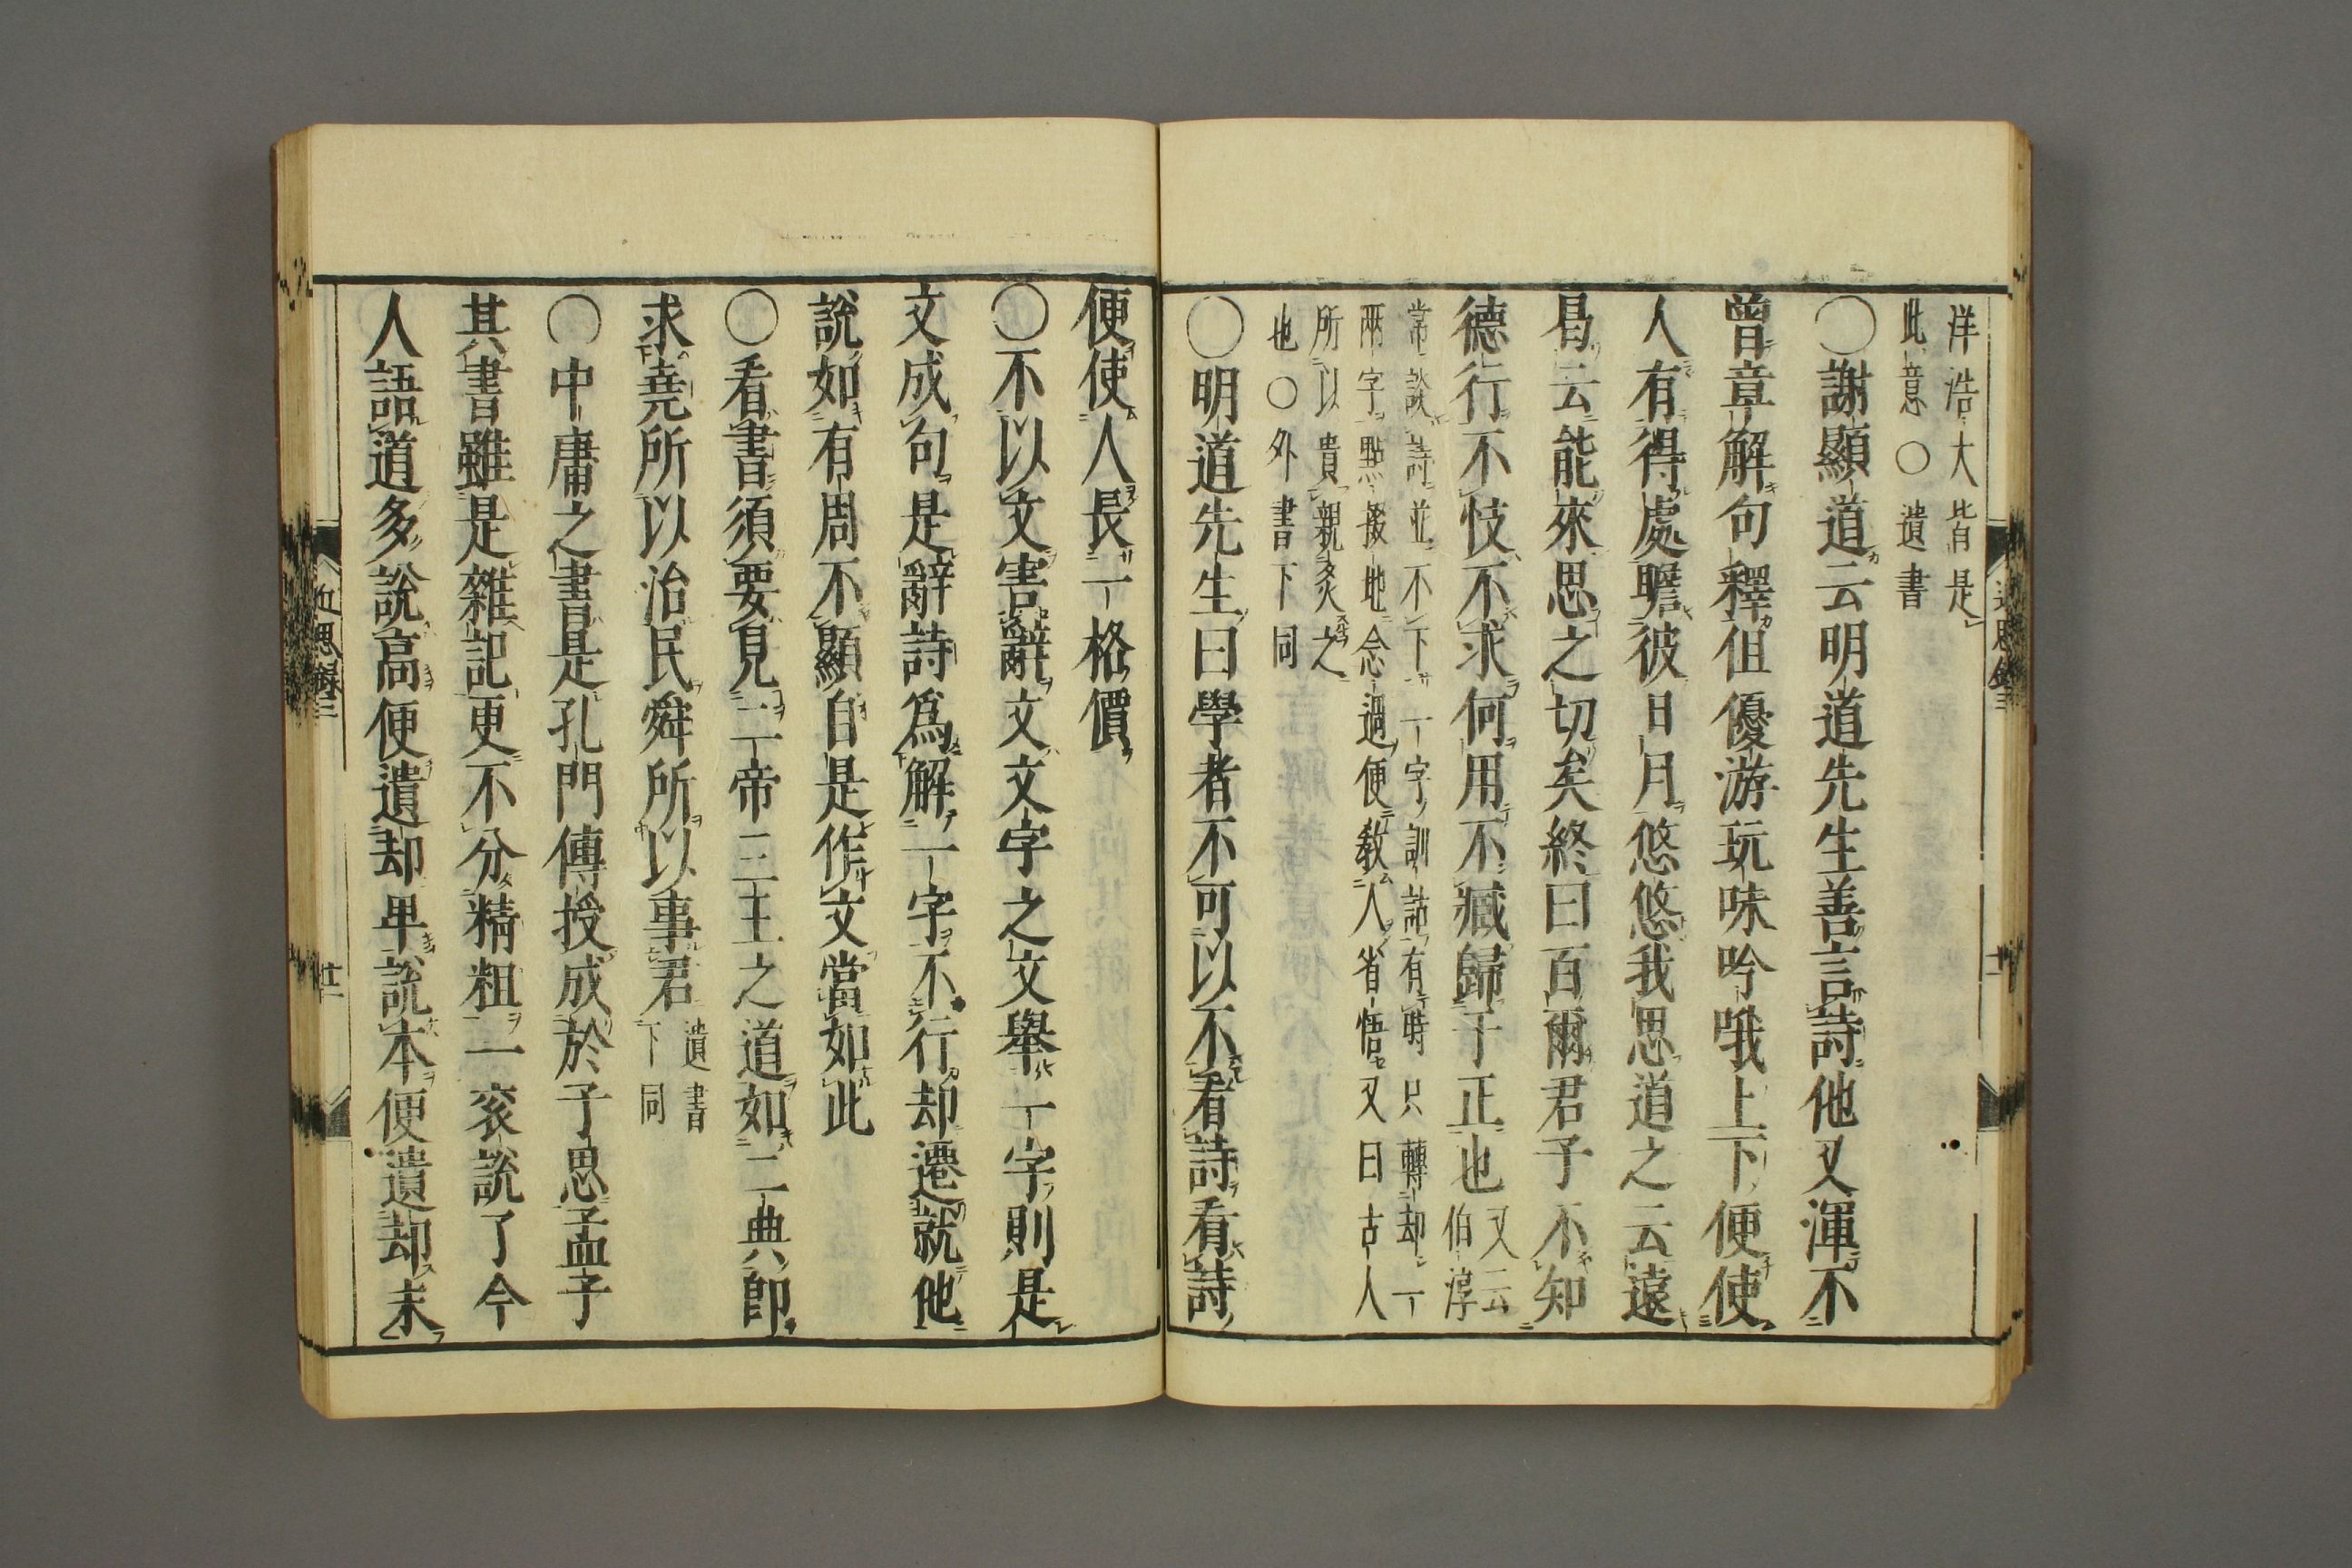 洋浩大皆是
此意○遺書
○謝顯道云明道先生善言詩他又渾不
曾章解句釋但優游玩味吟哦上下便使
人有得處瞻彼日月悠悠我思道之云遠
曷云能來思之切矣終曰百爾君子不知
德行不忮不求何用不臧歸于正也又云伯淳
常談詩並不下一字訓詁有時只轉却一
兩字點掇地念過便教人省悟又曰古人
所以貴親炙之
也○外書下同
○明道先生曰學者不可以不看詩看詩
便使人長一格價
○不以文害辭文文字之文舉一字則是
文成句是辭詩為解一字不行却遷就他
說如有周不顯自是作文當如此
○看書須要見二帝三王之道如二典即
求堯所以治民舜所以事君遺書下同
○中庸之書是孔門傳授成於子思孟子
其書雖是雜記更不分精粗一衮說了今
人語道多說高便遺却卑說本便遺却末
近思錄三